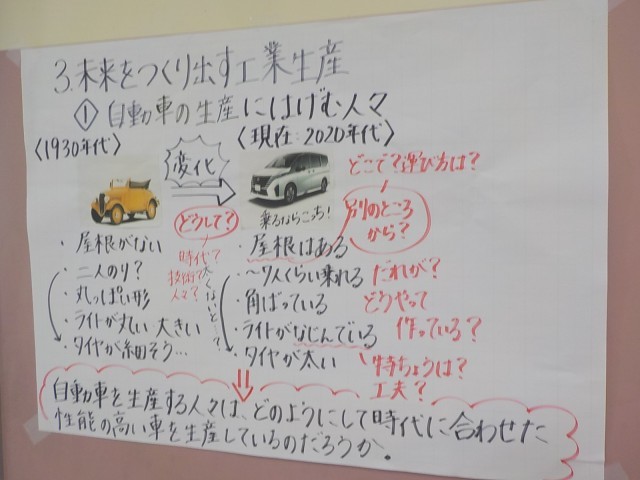 3.未来をつくり出す工業生産
① 自動車の生産にはげむ人々
〈1930年代〉
変化
〈現在:2020年代〉
どうして?
時代?
技術?
人々?
乗るならこっち!
どこで?運び方は?
別のところ
から?
・屋根がない
・二人のり?
・丸っぽい形
・ライトが丸い 大きい
・タイヤが細そう…
・屋根はある
・~7人くらい乗れる
・角ばっている
・ライトがなじんでいる
・タイヤが太い
だれが?
どうやって
作っている?
特ちょうは?
工夫?
自動車を生産する人々は、どのようにして時代に合わせた
性能の高い車を生産しているのだろうか。